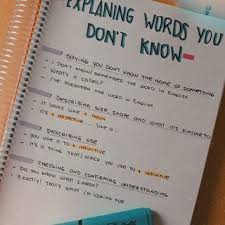 EXPLANING WORDS YOU
DON'T KNOW
- SAYING YOU DON'T KNOW THE NAME OF SOMETHING
- I DON'T KNOW/REMEMBER THE WORD IN ENGLISH
- WHAT'S IT CALLED?
- I'VE FORGOTTEN THE WORD IN ENGLISH
- DESCRIBING SIZE, SHAPE AND WHAT IT'S SIMILAR TO
- IT LOOKS LIKE A + NOUN
- IT'S + ADJECTIVE ... LIKE A ..
- DESCRIBING USE
- YOU USE IT TO + INFINITIVE
- IT'S A THING THAT WHICH YOU USE TO + INFINITIVE
- CHECKING AND CONFIRMING UNDERSTANDING
- DO YOU KNOW WHAT I MEAN?
- EXACTLY! THAT'S WHAT I'M LOOKING FOR